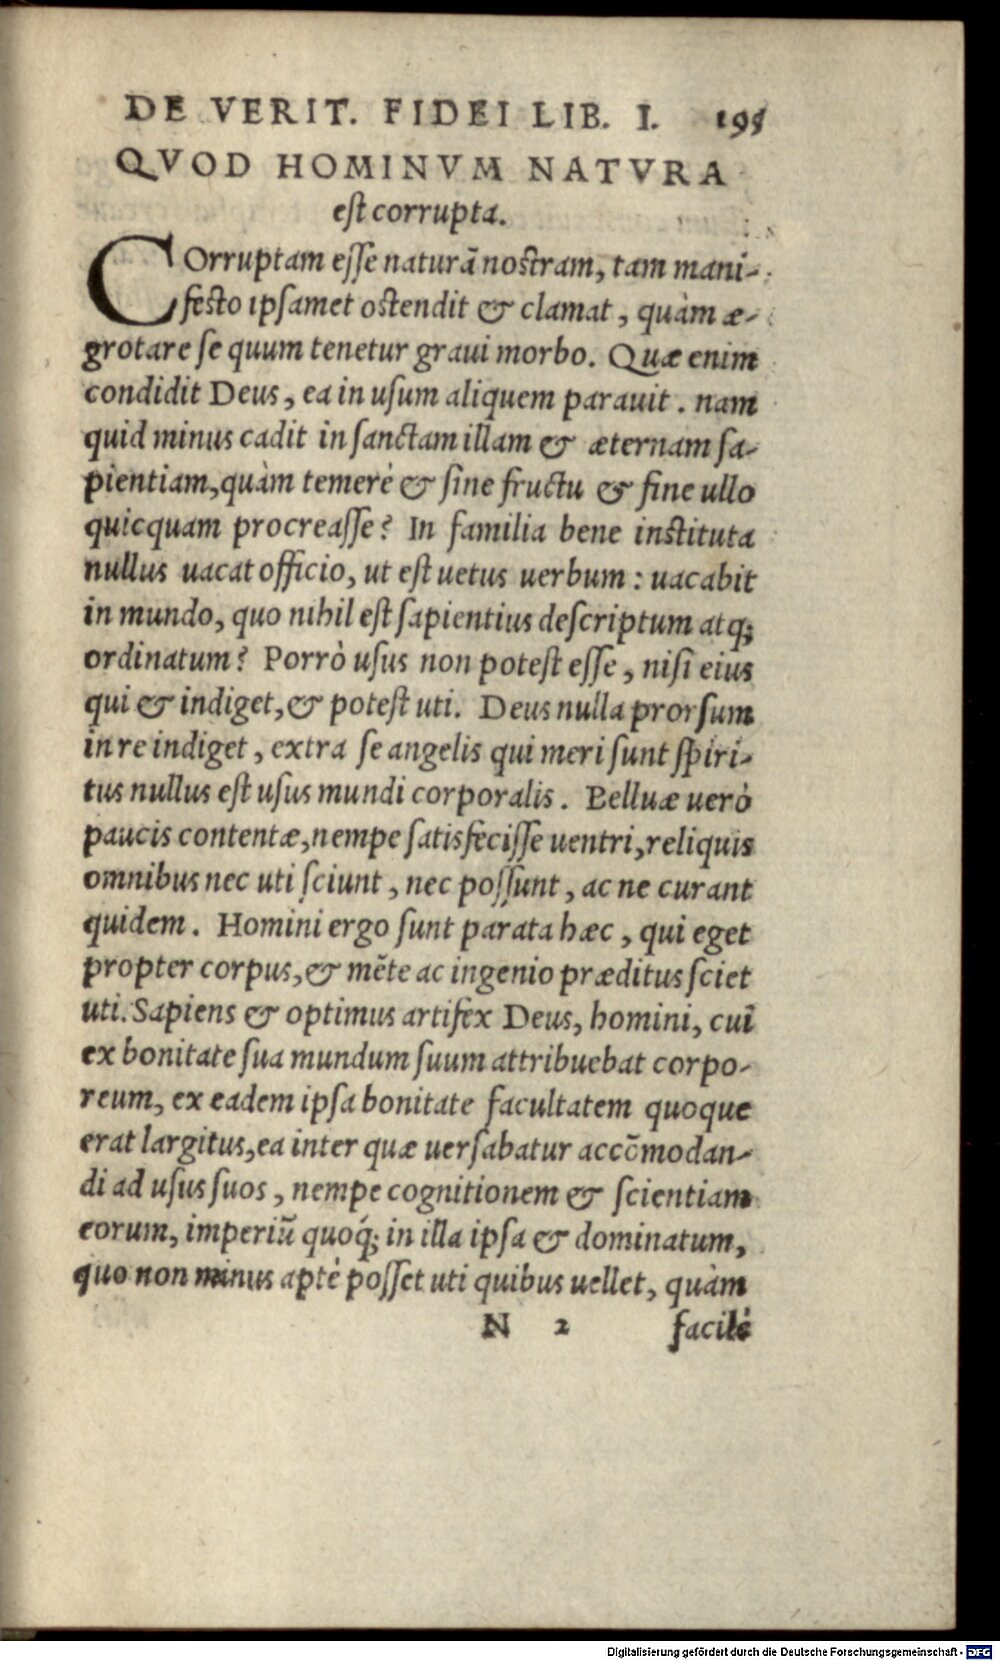 DE VERIT. FIDEI LIB. I. 195
QVOD HOMINVM NATVRA
est corrupta.
COrruptam esse naturā nostram, tam mani-
festo ipsamet ostendit & clamat, quàm æ-
grotare se quum tenetur graui morbo. Quæ enim
condidit Deus, ea in usum aliquem parauit. nam
quid minus cadit in sanctam illam & æternam sa-
pientiam, quàm temerè & sine fructu & fine ullo
quicquam procreasse? In familia bene instituta
nullus uacat officio, ut est uetus uerbum: uacabit
in mundo, quo nihil est sapientius descriptum atq;
ordinatum? Porrò usus non potest esse, nisi eius
qui & indiget, & potest uti. Deus nulla prorsum
in re indiget, extra se angelis qui meri sunt spiri-
tus nullus est usus mundi corporalis. Belluæ uerò
paucis contentæ, nempe satisfecisse uentri, reliquis
omnibus nec uti sciunt, nec possunt, ac ne curant
quidem. Homini ergo sunt parata hæc, qui eget
propter corpus, & mēte ac ingenio præditus sciet
uti. Sapiens & optimus artifex Deus, homini, cui
ex bonitate sua mundum suum attribuebat corpo-
reum, ex eadem ipsa bonitate facultatem quoque
erat largitus, ea inter quæ uersabatur accōmodan-
di ad usus suos, nempe cognitionem & scientiam
eorum, imperiū quoq́; in illa ipsa & dominatum,
quo non minus aptè posset uti quibus uellet, quàm
N 2 facilè
Digitalisierung gefördert durch die Deutsche Forschungsgemeinschaft - DFG